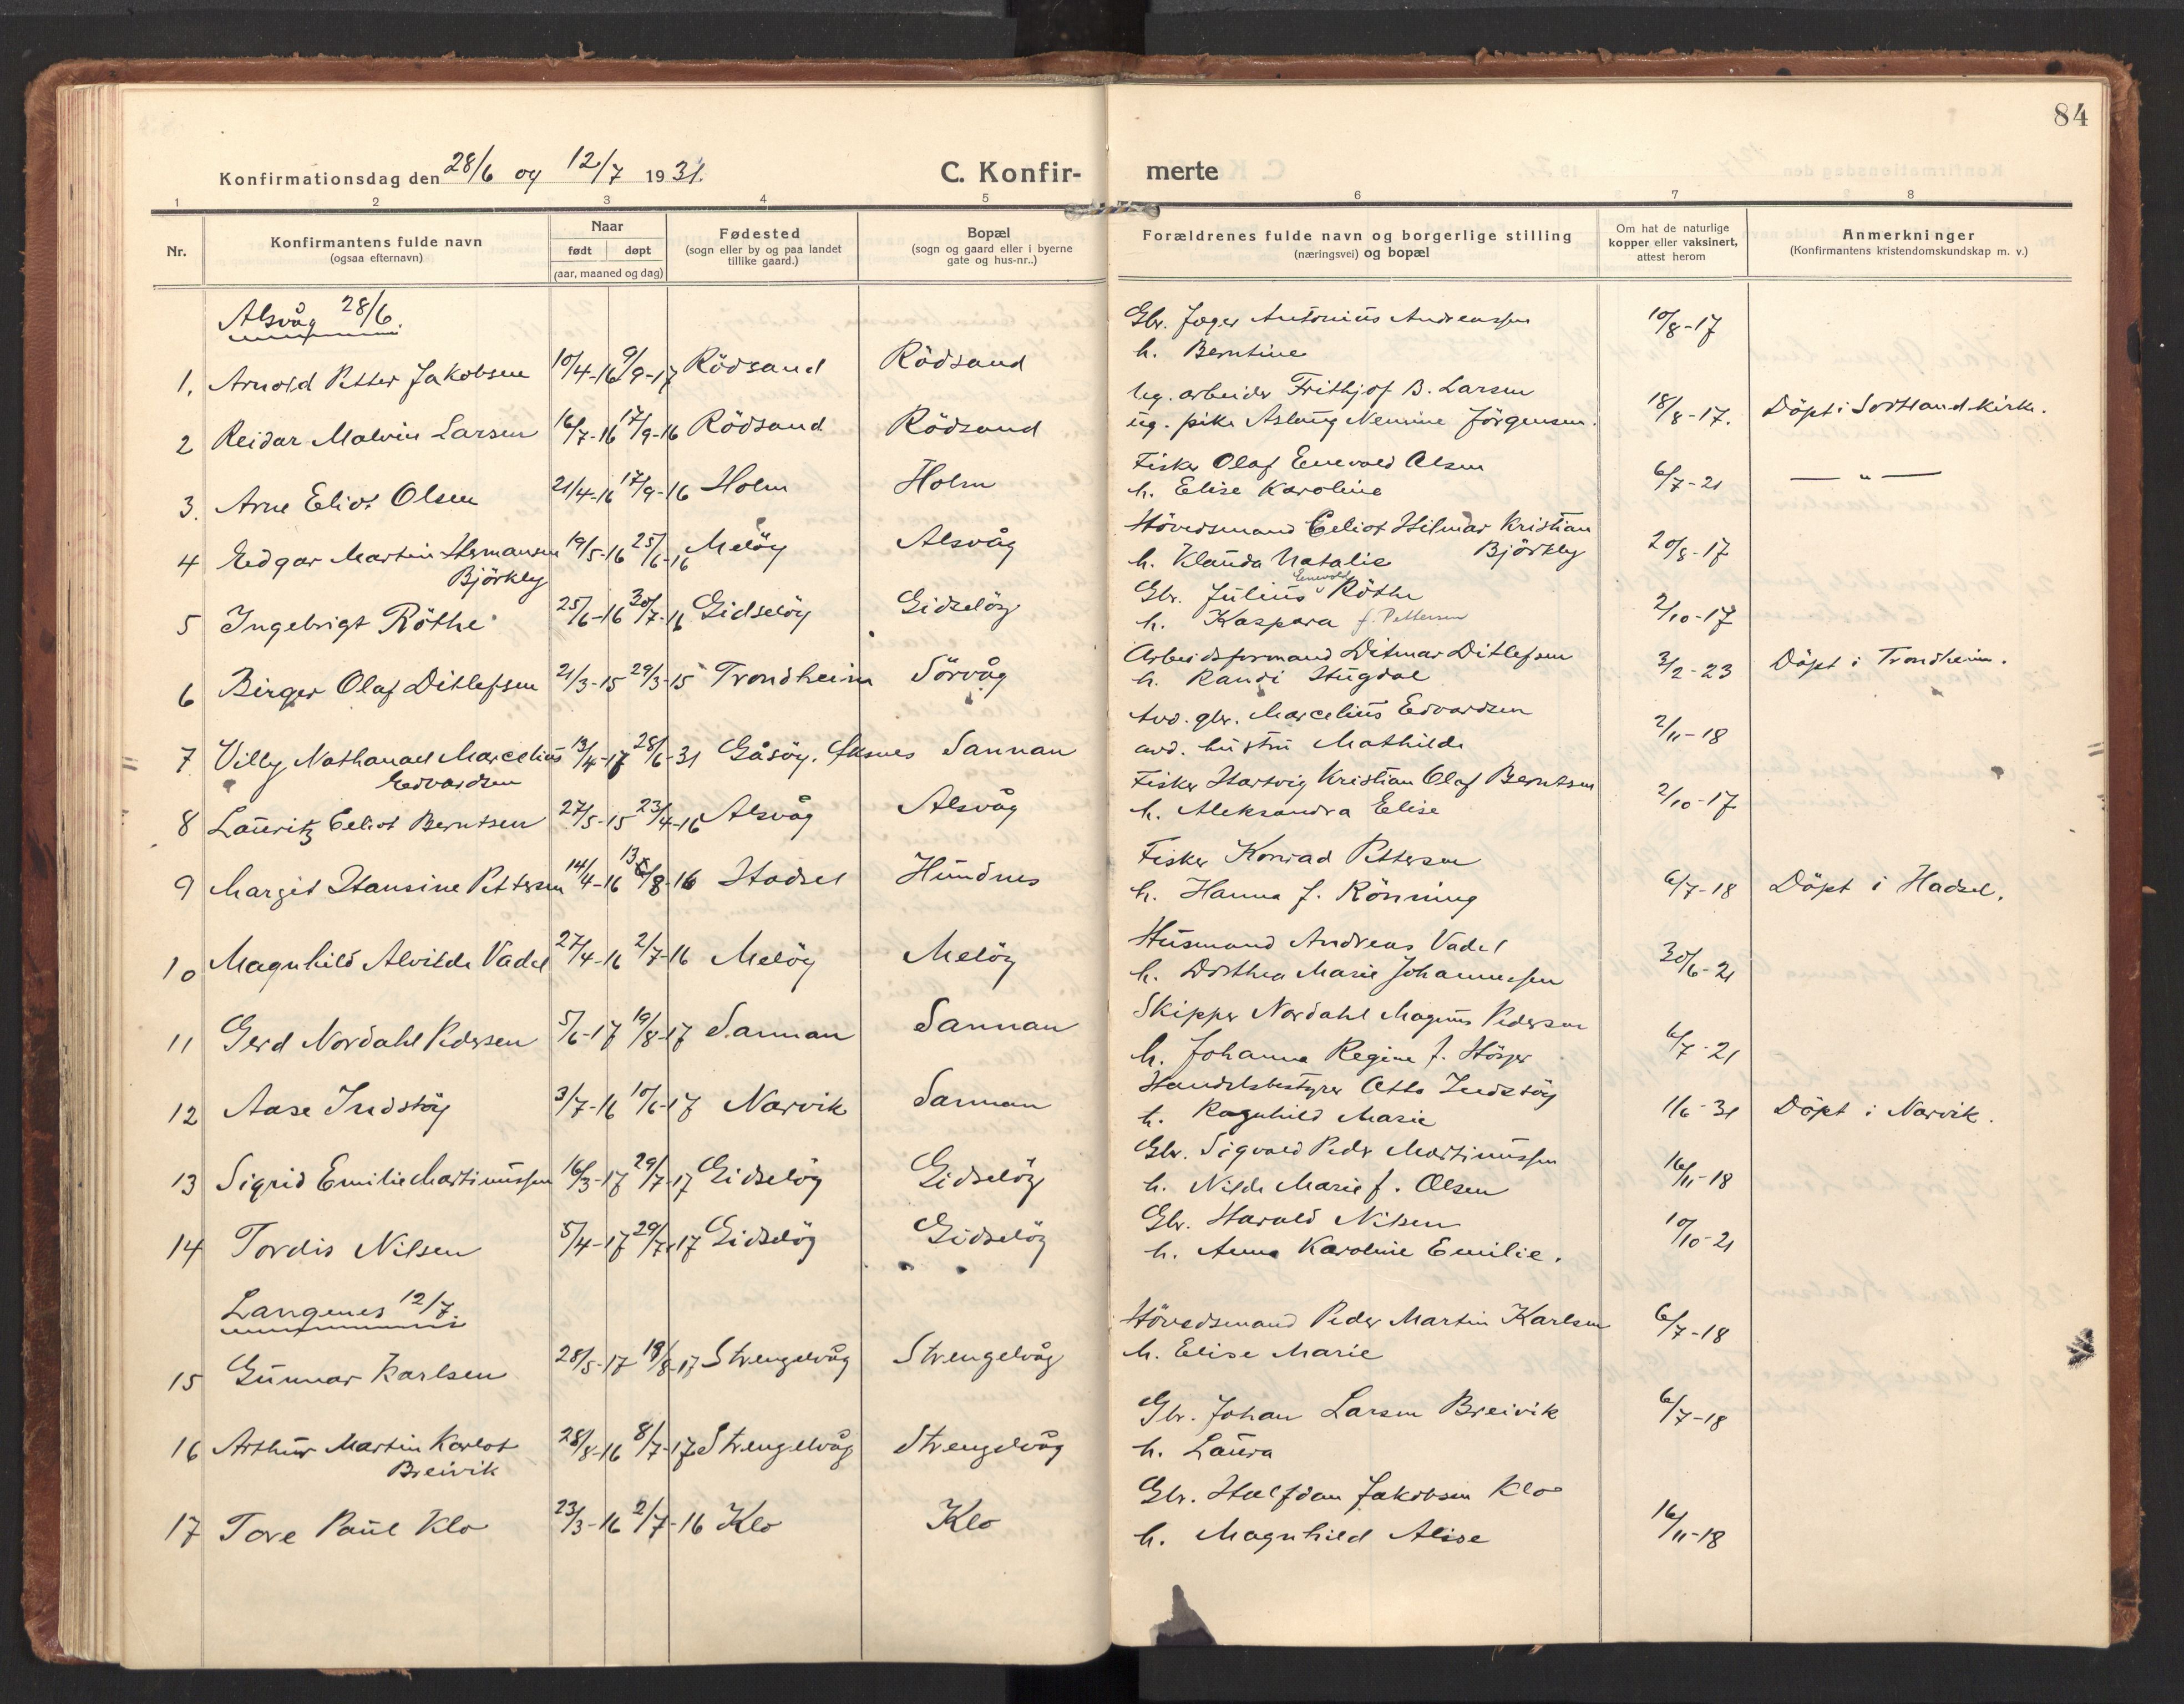 84
Konfirmationsdag den 28/6 og 12/7 1931.
C. Konfir-
merte
1 2 3 4 5 6 7 8
Nr.
Konfirmantens fulde navn
(ogsaa efternavn)
Naar
født døpt
(aar, maaned og dag)
Fødested
(sogn eller by og paa landet
tillike gaard.)
Bopæl
(sogn og gaard eller i byerne
gate og hus-nr..)
Forældrenes fulde navn og borgerlige stilling
(næringsvei) og bopæl
Om hat de naturlige
kopper eller vaksinert,
attest herom
Anmerkninger
(Konfirmantens kristendomskundskap m. v.)
Alsvåg 28/6.
1. Arnold Petter Jakobsen 10/4-16 9/9-17 Rödsand Rödsand
Gbr. Jæger Antonius Andreassen 10/8-17
h. Berntine
2 Reidar Malvin Larsen 16/7-16 17/9-16 Rödsand Rödsand
Ug. arbeider Frithjof B. Larsen
ug. pike Aslaug Nennine Jörgensen. 18/8-17. Döpt i Sortland kirke.
3. Arne Eliot Olsen 21/4-16 17/9-16 Holm Holm
Fisker Olaf Enevold Olsen
h. Elise Karoline 6/7-21 — " —
4 Edgar Martin Hermansen 19/5-16 25/6-16 Melöy Alsvåg
Björkly
Hövedsmand Eeliot Hilmar Kristian
h. Klauda Natalie Björkly 20/8-17
5 Ingebrigt Röthe 25/6-16 30/7-16 Gidselöy Gidselöy
Gbr. Julius Enevold Röthe
h. Kaspara f. Pettersen 2/10-17
6 Birger Olaf Ditlefsen 21/3-15 29/3-15 Trondheim Sörvåg
Arbeidsformand Ditmar Ditlefsen
h. Randi Stugdal 3/2-23 Döpt i Trondheim.
7 Villy Nathanael Marcelius 13/4-17 28/6-31 Gåsöy. Sannan
Edvardsen
Avd. gbr. Marcelius Edvardsen
avd. hustru Mathilde 2/11-18
8 Lauritz Eeliot Berntsen 27/5-15 23/4-16 Alsvåg Alsvåg
Fisker Hartvig Kristian Olaf Berntsen
h. Aleksandra Elise 2/10-17
9 Margit Hansine Pettersen 14/4-16 13/8-16 Hadsel Hundnes
Fisker Konrad Pettersen
h. Hanna f. Rönning 6/7-18 Döpt i Hadsel.
10 Magnhild Alvilde Vadel 27/4-16 2/7-16 Melöy Melöy
Husmand Andreas Vadel
h. Dorthea Marie Johannessen 30/6-21
11 Gerd Nordahl Pedersen 5/6-17 19/8-17 Sannan Sannan
Skipper Nordahl Magnus Pedersen
h. Johanna Regine f. 6/7-21
12 Aase Indstöy 3/7-16 10/6-17 Narvik Sannan
Handelsbestyrer Otto Indstöy
h. Ragnhild Marie 1/6-31 Döpt i Narvik.
13 Sigrid Emilie Martinussen 16/3-17 29/7-17 Gidselöy Gidselöy
Gbr. Sigvald Peder Martinussen
h. Nilde Marie f. Olsen 16/11-18
14 Tordis Nilsen 5/4-17 29/7-17 Gidselöy Gidselöy
Gbr. Harald Nilsen
h. Anna Karoline Emilie. 10/10-21
Langenes 12/7.
15 Gunnar Karlsen 28/5-17 19/8-17 Strengelvåg Strengelvåg
Hövedsmand Peder Martin Karlsen 6/7-18
h. Elise Marie
16 Arthur Martin Karlot 28/8-16 8/7-17 Strengelvåg Strengelvåg
Breivik
Gbr. Johan Larsen Breivik 6/7-18
h. Laura
17 Tore Paul Klo 23/3-16 2/7-16 Klo Klo
Gbr. Halfdan Jakobsen Klo
h. Magnhild Alise 16/11-18